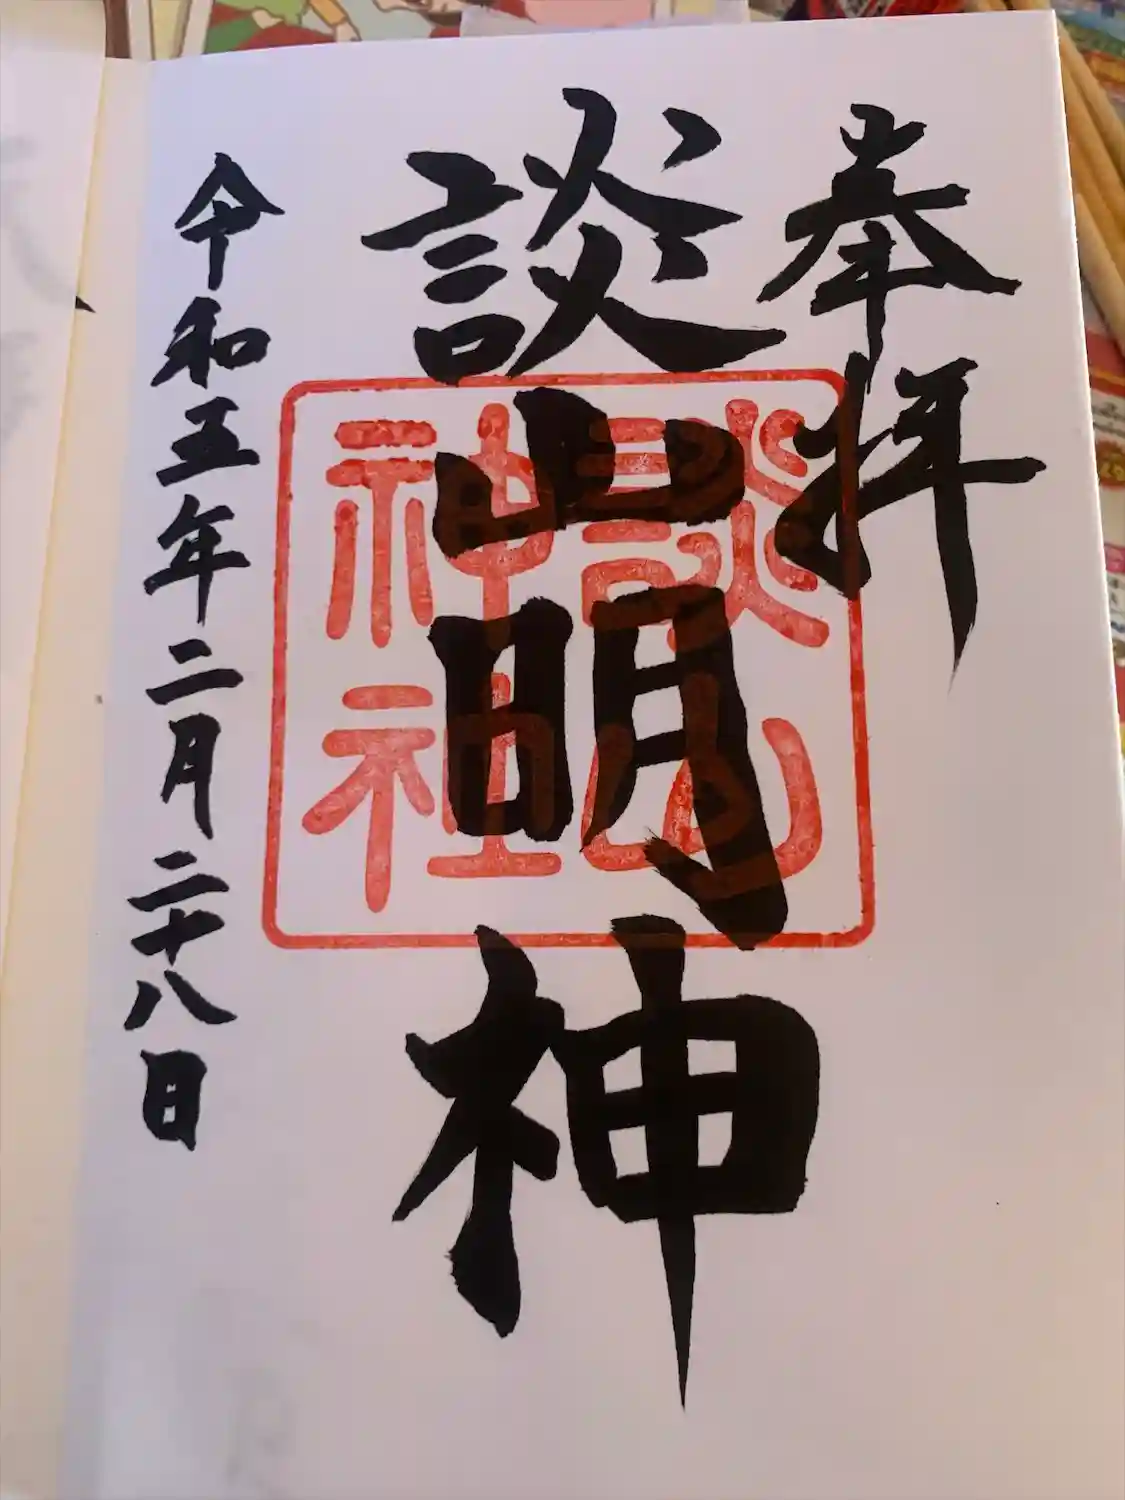 奉拝
談山明神
談山
神社
令和五年二月二十八日